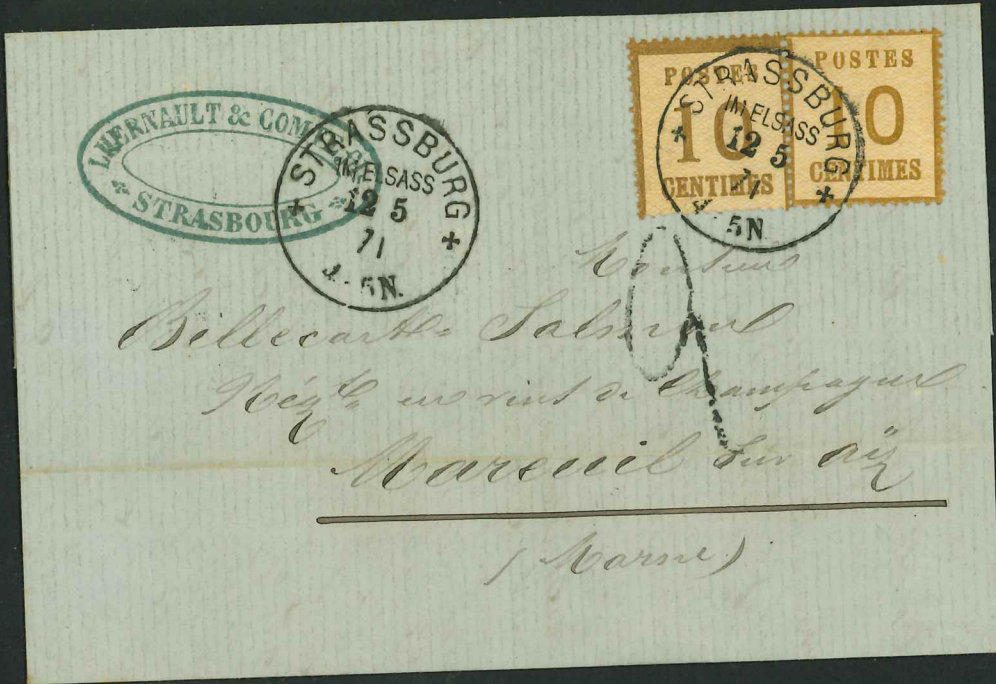 LHERNAULT & COM
STRASBOURG
STRASSBURG
IM ELSASS
12 5
71
4-5N.
POSTES
10
CENTIMES
POSTES
10
CENTIMES
STRASSBURG
IM ELSASS
12 5
71
4-5N
Monsieur
Billecart Salmon
Négt en vins de Champagne
Mareuil sur Aÿ
(Marne)